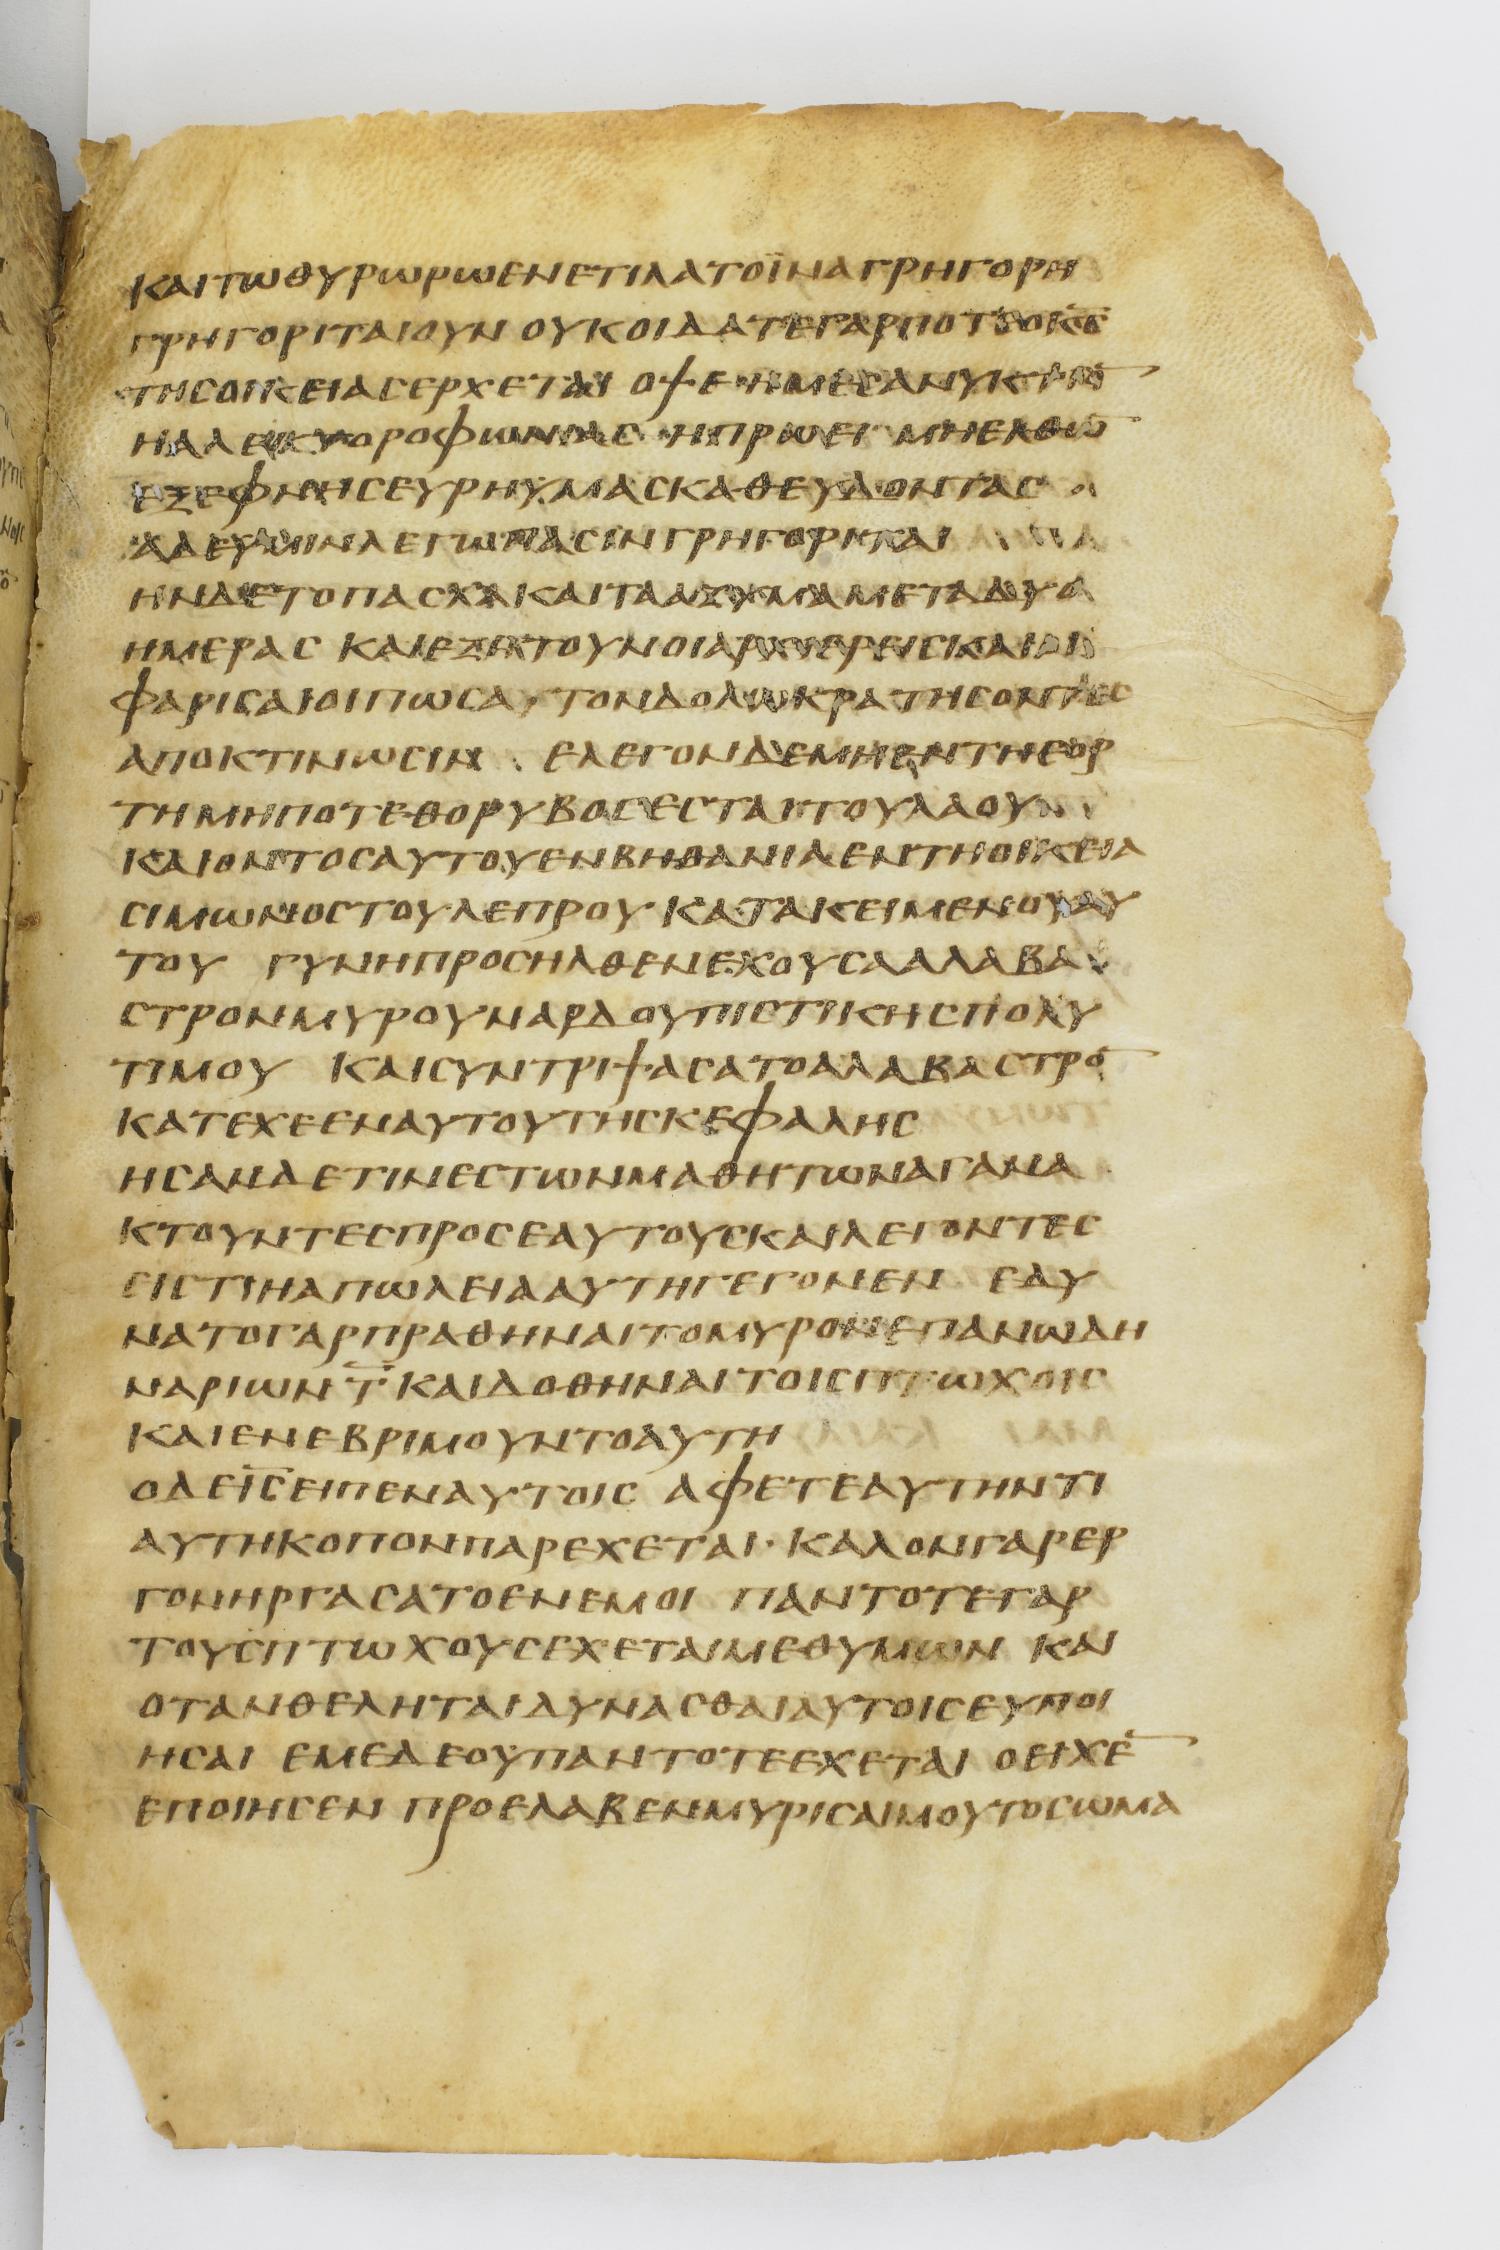 ΚΑΙΤΩΘΥΡΩΡΩΕΝΕΤΙΛΑΤΟΪΝΑΓΡΗΓΟΡΗ
ΓΡΗΓΟΡΙΤΑΙΟΥΝΟΥΚΟΙΔΑΤΕΓΑΡΠΟΤΕΟΚ̅Σ̅
ΤΗΣΟΙΚΕΙΑΣΕΡΧΕΤΑΙ ΟΨΕΗΜΕΣΑΝΥΚΤΙΟ̅
ΗΑΛΕΚΤΟΡΟΦΩΝΙΑΣ ΗΠΡΩΕΙ ΜΗΕΛΘΩ̅
ΕΞΕΦΝΗΣΕΥΡΗΥΜΑΣΚΑΘΕΥΔΟΝΤΑΣ
ΔΕΥΜΙΝΛΕΓΩΠΑΣΙΝΓΡΗΓΟΡΙΤΑΙ
ΗΝΔΕΤΟΠΑΣΧΑΚΑΙΤΑΑΖΥΜΑΜΕΤΑΔΥΟ
ΗΜΕΡΑΣ ΚΑΙΕΖΗΤΟΥΝΟΙΑΡΧΙΕΡΕΙΣΚΑΙΟΙ
ΦΑΡΙΣΑΙΟΙΠΩΣΑΥΤΟΝΔΟΛΩΚΡΑΤΗΣΟΝΤΕΣ
ΑΠΟΚΤΙΝΩΣΙΝ ΕΛΕΓΟΝΔΕΜΗΕΝΤΗΕΟΡ
ΤΗΜΗΠΟΤΕΘΟΡΥΒΟΣΕΣΤΑΙΤΟΥΛΑΟΥ
ΚΑΙΟΝΤΟΣΑΥΤΟΥΕΝΒΗΘΑΝΙΑΕΝΤΗΟΙΚΕΙΑ
ΣΙΜΩΝΟΣΤΟΥΛΕΠΡΟΥ ΚΑΤΑΚΕΙΜΕΝΟΥΑΥ
ΤΟΥ ΓΥΝΗΠΡΟΣΗΛΘΕΝΕΧΟΥΣΑΑΛΑΒΑ
ΣΤΡΟΝΜΥΡΟΥΝΑΡΔΟΥΠΙΣΤΙΚΗΣΠΟΛΥ
ΤΙΜΟΥ ΚΑΙΣΥΝΤΡΙΨΑΣΑΤΟΑΛΑΒΑΣΤΡΟ̅
ΚΑΤΕΧΕΕΝΑΥΤΟΥΤΗΣΚΕΦΑΛΗΣ
ΗΣΑΝΔΕΤΙΝΕΣΤΩΝΜΑΘΗΤΩΝΑΓΑΝΑ
ΚΤΟΥΝΤΕΣΠΡΟΣΕΑΥΤΟΥΣΚΑΙΛΕΓΟΝΤΕΣ
ΕΙΣΤΙΗΑΠΩΛΕΙΑΑΥΤΗΓΕΓΟΝΕΝ ΕΔΥ
ΝΑΤΟΓΑΡΠΡΑΘΗΝΑΙΤΟΜΥΡΟΝΕΠΑΝΩΔΗ
ΝΑΡΙΩΝ Τ̅ ΚΑΙΔΟΘΗΝΑΙΤΟΙΣΠΤΩΧΟΙΣ
ΚΑΙΕΝΕΒΡΙΜΟΥΝΤΟΑΥΤΗ
ΟΔΕΙ̅Σ̅ΕΙΠΕΝΑΥΤΟΙΣ ΑΦΕΤΕΑΥΤΗΝΤΙ
ΑΥΤΗΚΟΠΟΝΠΑΡΕΧΕΤΑΙ· ΚΑΛΟΝΓΑΡΕΡ
ΓΟΝΗΡΓΑΣΑΤΟΕΝΕΜΟΙ ΠΑΝΤΟΤΕΓΑΡ
ΤΟΥΣΠΤΩΧΟΥΣΕΧΕΤΑΙΜΕΘΥΜΩΝ ΚΑΙ
ΟΤΑΝΘΕΛΗΤΑΙΔΥΝΑΣΘΑΙΑΥΤΟΙΣΕΥΠΟΙ
ΗΣΑΙ ΕΜΕΔΕΟΥΠΑΝΤΟΤΕΕΧΕΤΑΙ ΟΕΙΧΕ̅
ΕΠΟΙΗΣΕΝ ΠΡΟΕΛΑΒΕΝΜΥΡΙΣΑΙΜΟΥΤΟΣΩΜΑ